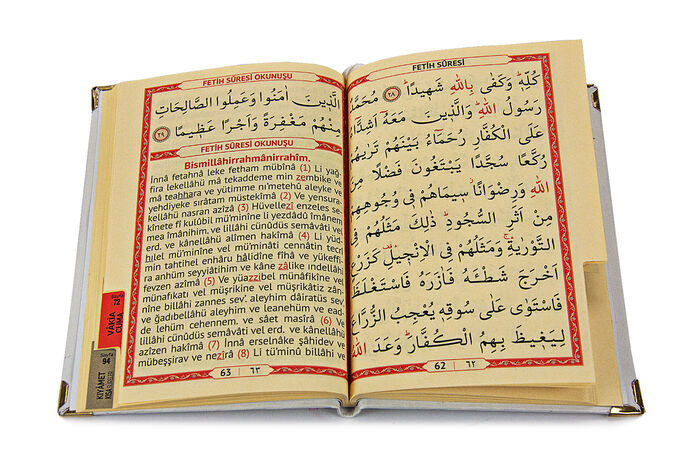 FETİH SÛRESİ
كُلِّهٖۜ وَكَفٰى بِاللّٰهِ شَهٖيدًاۜ ﴿٢٨﴾ مُحَمَّدٌ
رَسُولُ اللّٰهِۜ وَالَّذٖينَ مَعَهُٓ اَشِدَّٓاءُ
عَلَى الْكُفَّارِ رُحَمَٓاءُ بَيْنَهُمْ تَرٰيهُمْ
رُكَّعًا سُجَّدًا يَبْتَغُونَ فَضْلًا مِنَ
اللّٰهِ وَرِضْوَانًاۘ سٖيمَاهُمْ فٖى وُجُوهِهِمْ
مِنْ اَثَرِ السُّجُودِۜ ذٰلِكَ مَثَلُهُمْ فِى
التَّوْرٰيةِۚ وَمَثَلُهُمْ فِى الْاِنْجٖيلِۚ كَزَرْعٍ
اَخْرَجَ شَطْـَٔهُ فَاٰزَرَهُ فَاسْتَغْلَظَ
فَاسْتَوٰى عَلٰى سُوقِهٖ يُعْجِبُ الزُّرَّاعَ
لِيَغٖيظَ بِهِمُ الْكُفَّارَۜ وَعَدَ اللّٰهُ
62 ٦٢
FETİH SÛRESİ OKUNUŞU
الَّذٖينَ اٰمَنُوا وَعَمِلُوا الصَّالِحَاتِ
مِنْهُمْ مَغْفِرَةً وَاَجْرًا عَظٖيمًا ﴿٢٩﴾
FETİH SÛRESİ OKUNUŞU
Bismillâhirrahmânirrahîm.
İnnâ fetahnâ leke fetham mübînâ (1) Li yağ-
fira lekellâhü mâ tekaddeme min zembike ve
mâ teahhara ve yütimme ni'metehû aleyke ve
yehdiyeke sırâtam müstekîmâ (2) Ve yensura-
kellâhü nasran azîzâ (3) Hüvellezî enzeles se-
kînete fî kulûbil mü'minîne li yezdâdû îmânem
mea îmânihim. ve lillâhi cünûdüs semâvâti vel
erd. ve kânellâhü alîmen hakîmâ (4) Li yüd-
hilel mü'minîne vel mü'minâti cennâtin tecrî
min tahtihel enhâru hâlidîne fîhâ ve yükeffi-
ra anhüm seyyiâtihim ve kâne zâlike indellâhi
fevzen azîmâ (5) Ve yüazzibel münâfikîne vel
münâfikâti vel müşrikîne vel müşrikâtiz zân-
nîne billâhi zannes sev'. aleyhim dâiratüs sev'
ve ğadıbellâhü aleyhim ve leanehüm ve ead-
de lehüm cehennem. ve sâet masîrâ (6) Ve
lillâhi cünûdüs semâvâti vel erd. ve kânellâhü
azîzen hakîmâ (7) İnnâ erselnâke şâhidev ve
mübeşşirav ve nezîrâ (8) Li tü'minû billâhi ve
63 ٦٣
Sayfa
72
VÂKIA
CUMA
Sayfa
94
KIYÂMET
KISA SÛRELER